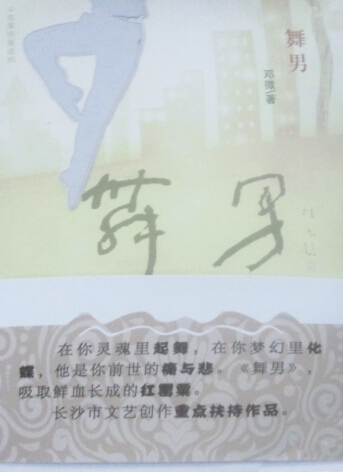 舞男
邓微|著
舞男
在你灵魂里起舞，在你梦幻里化
蝶，他是你前世的痛与悲。《舞男》，
吸取鲜血长成的红罂粟。
长沙市文艺创作重点扶持作品。